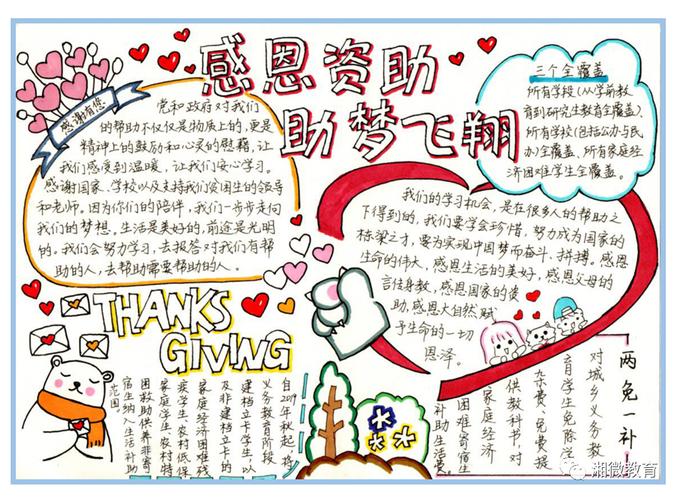 感恩资助
助梦飞翔
感谢有您
党和政府对我们
的帮助不仅仅是物质上的,更是
精神上的鼓励和心灵的慰藉,让
我们感受到温暖,让我们安心学习。
感谢国家、学校以及支持我们贫困生的领导
和老师。因为你们的陪伴,我们一步步走向
我们的梦想。生活是美好的,前途是光明
的。我们会努力学习,去报答对我们有帮
助的人,去帮助需要帮助的人。
三个全覆盖
所有学段(从学前教
育到研究生教育全覆盖)、
所有学校(包括公办与民
办)全覆盖、所有家庭经
济困难学生全覆盖。
我们的学习机会,是在很多人的帮助之
下得到的,我们要学会珍惜,努力成为国家的
栋梁之才,要为实现中国梦而奋斗、拼搏。感恩
生命的伟大,感恩生活的美好,感恩父母的
言传身教,感恩国家的资
助,感恩大自然赋
予生命的一切
恩泽。
THANKS
GIVING
自2019年秋起,将
义务教育阶段
建档立卡学生,以
及非建档立卡的
家庭经济困难残
疾学生、农村低保
家庭学生、农村特
困救助供养非寄
宿生纳入生活补助
范围。
两免一补
对城乡义务教
育学生免除学
杂费、免费提
供教科书,对
家庭经济
困难寄宿生
补助生活费。
湘微教育